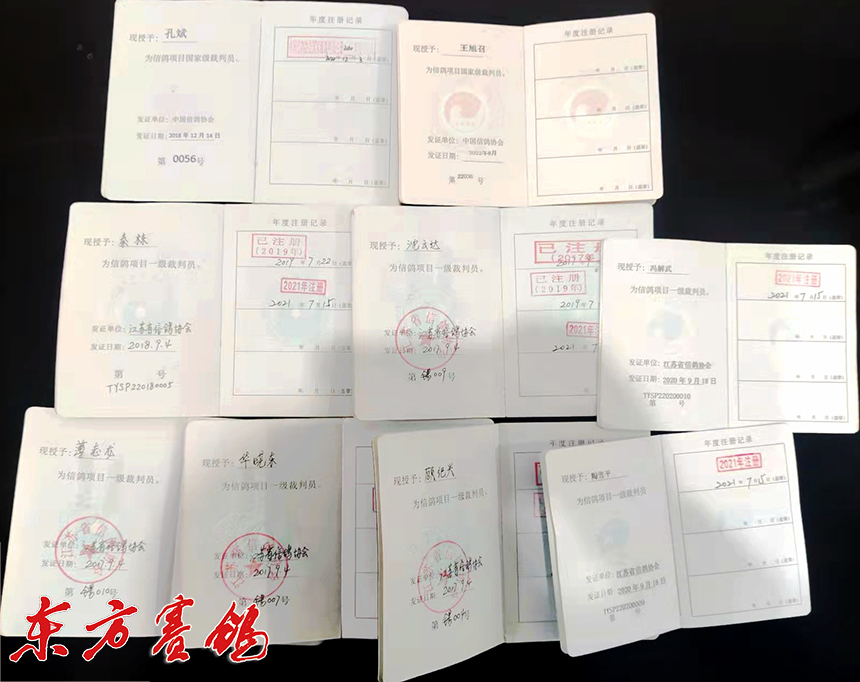 现授予：孔斌
为信鸽项目国家级裁判员。
发证单位：中国信鸽协会
发证日期：2018年12月14日
第 0056 号
年度注册记录
年 月 日（盖章）
年 月 日（盖章）
年 月 日（盖章）
现授予：王旭召
为信鸽项目国家级裁判员。
发证单位：中国信鸽协会
发证日期：2022年8月
第 22036 号
年度注册记录
年 月 日（盖章）
年 月 日（盖章）
年 月 日（盖章）
年 月 日（盖章）
现授予：秦栋
为信鸽项目一级裁判员。
发证单位：江苏省信鸽协会
发证日期：2018.9.4
第 号
TYSP220180005
年度注册记录
已注册
(2019年)
2019年7月22日(盖章)
2021年注册
2021年7月15日(盖章)
年 月 日(盖章)
年 月 日(盖章)
现授予：沈立达
为信鸽项目一级裁判员。
发证单位：江苏省信鸽协会
发证日期：2017.9.4
第 锡009号
年度注册记录
已注册
(2017年)
已注册
(2019年)
2019年7
2021年
2021年7
现授予：冯解武
为信鸽项目一级裁判员。
发证单位：江苏省信鸽协会
发证日期：2020年9月18日
TYSP220200010
第 号
年度注册记录
2021年注册
2021年7月15日(盖章)
年 月 日(盖章)
年 月 日(盖章)
年 月 日(盖章)
现授予：
为信鸽项目一级裁判员。
发证单位：江苏省信鸽协会
发证日期：2017.9.4
第 锡010号
现授予：华晓春
为信鸽项目一级裁判员。
发证单位：江苏省信鸽协会
发证日期：2017.9.4
第 锡007号
现授予：顾纪兴
为信鸽项目一级裁判员。
发证单位：江苏省信鸽协会
发证日期：2017.9.4
年度注册记录
现授予：陶雪平
为信鸽项目一级裁判员
发证单位：江苏省信鸽协会
发证日期：2020年9月18日
TYSP220200009
第 号
年度注册记录
2021年注册
2021年7月15日(盖章)
年 月 日(盖章)
年 月 日(盖章)
年 月 日(盖章)
东方赛鸽